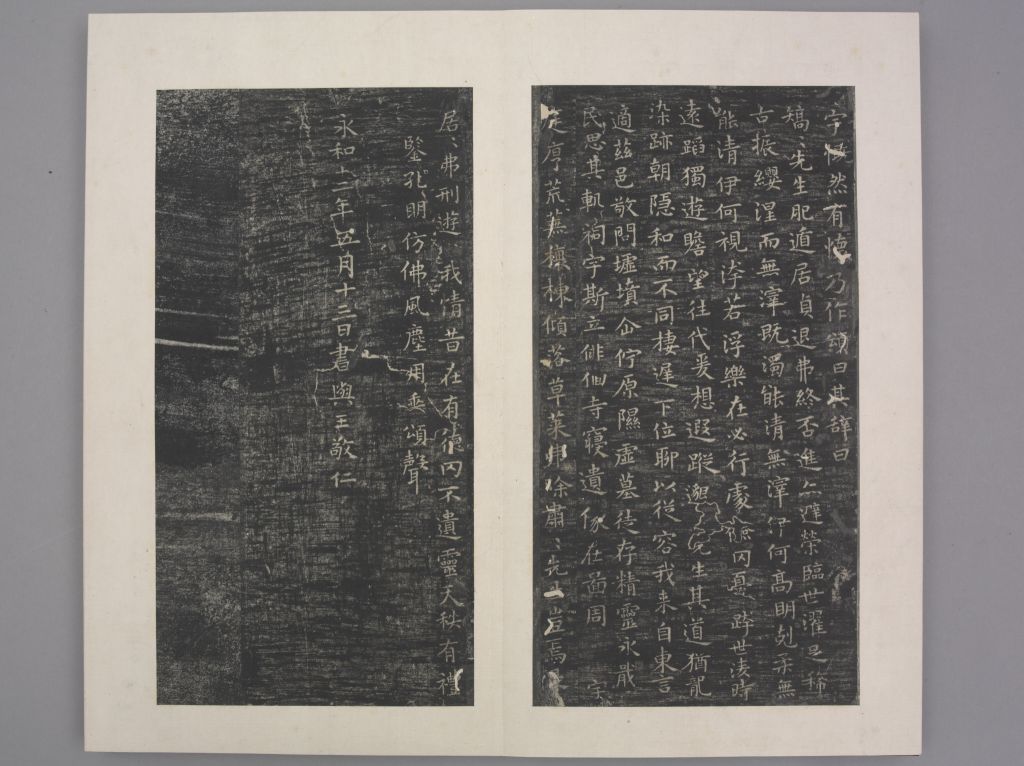 宇慨然有懷乃作頌曰其辭曰
矯〻先生肥遁居貞退弗終否進亦避榮臨世濯足稀
古振纓涅而無滓既濁能清無滓伊何高明剋柔無
能清伊何視汙若浮樂在必行處儉罔憂跨世淩時
遠蹈獨遊瞻望往代爰想遐蹤邈〻先生其道猶龍
染跡朝隱和而不同棲遲下位聊以從容我来自東言
適茲邑敬問墟墳企佇原隰虛墓徒存精靈永戢
民思其軌祠宇斯立徘徊寺寢遺像在啚周 宇
庭序荒蕪榱棟傾落草萊弗除肅〻先生豈焉
居〻弗刑遊〻我情昔在有德罔不遺靈天秩有禮
鑒孔明仿佛風塵用垂頌聲
永和十二年五月十三日書與王敬仁